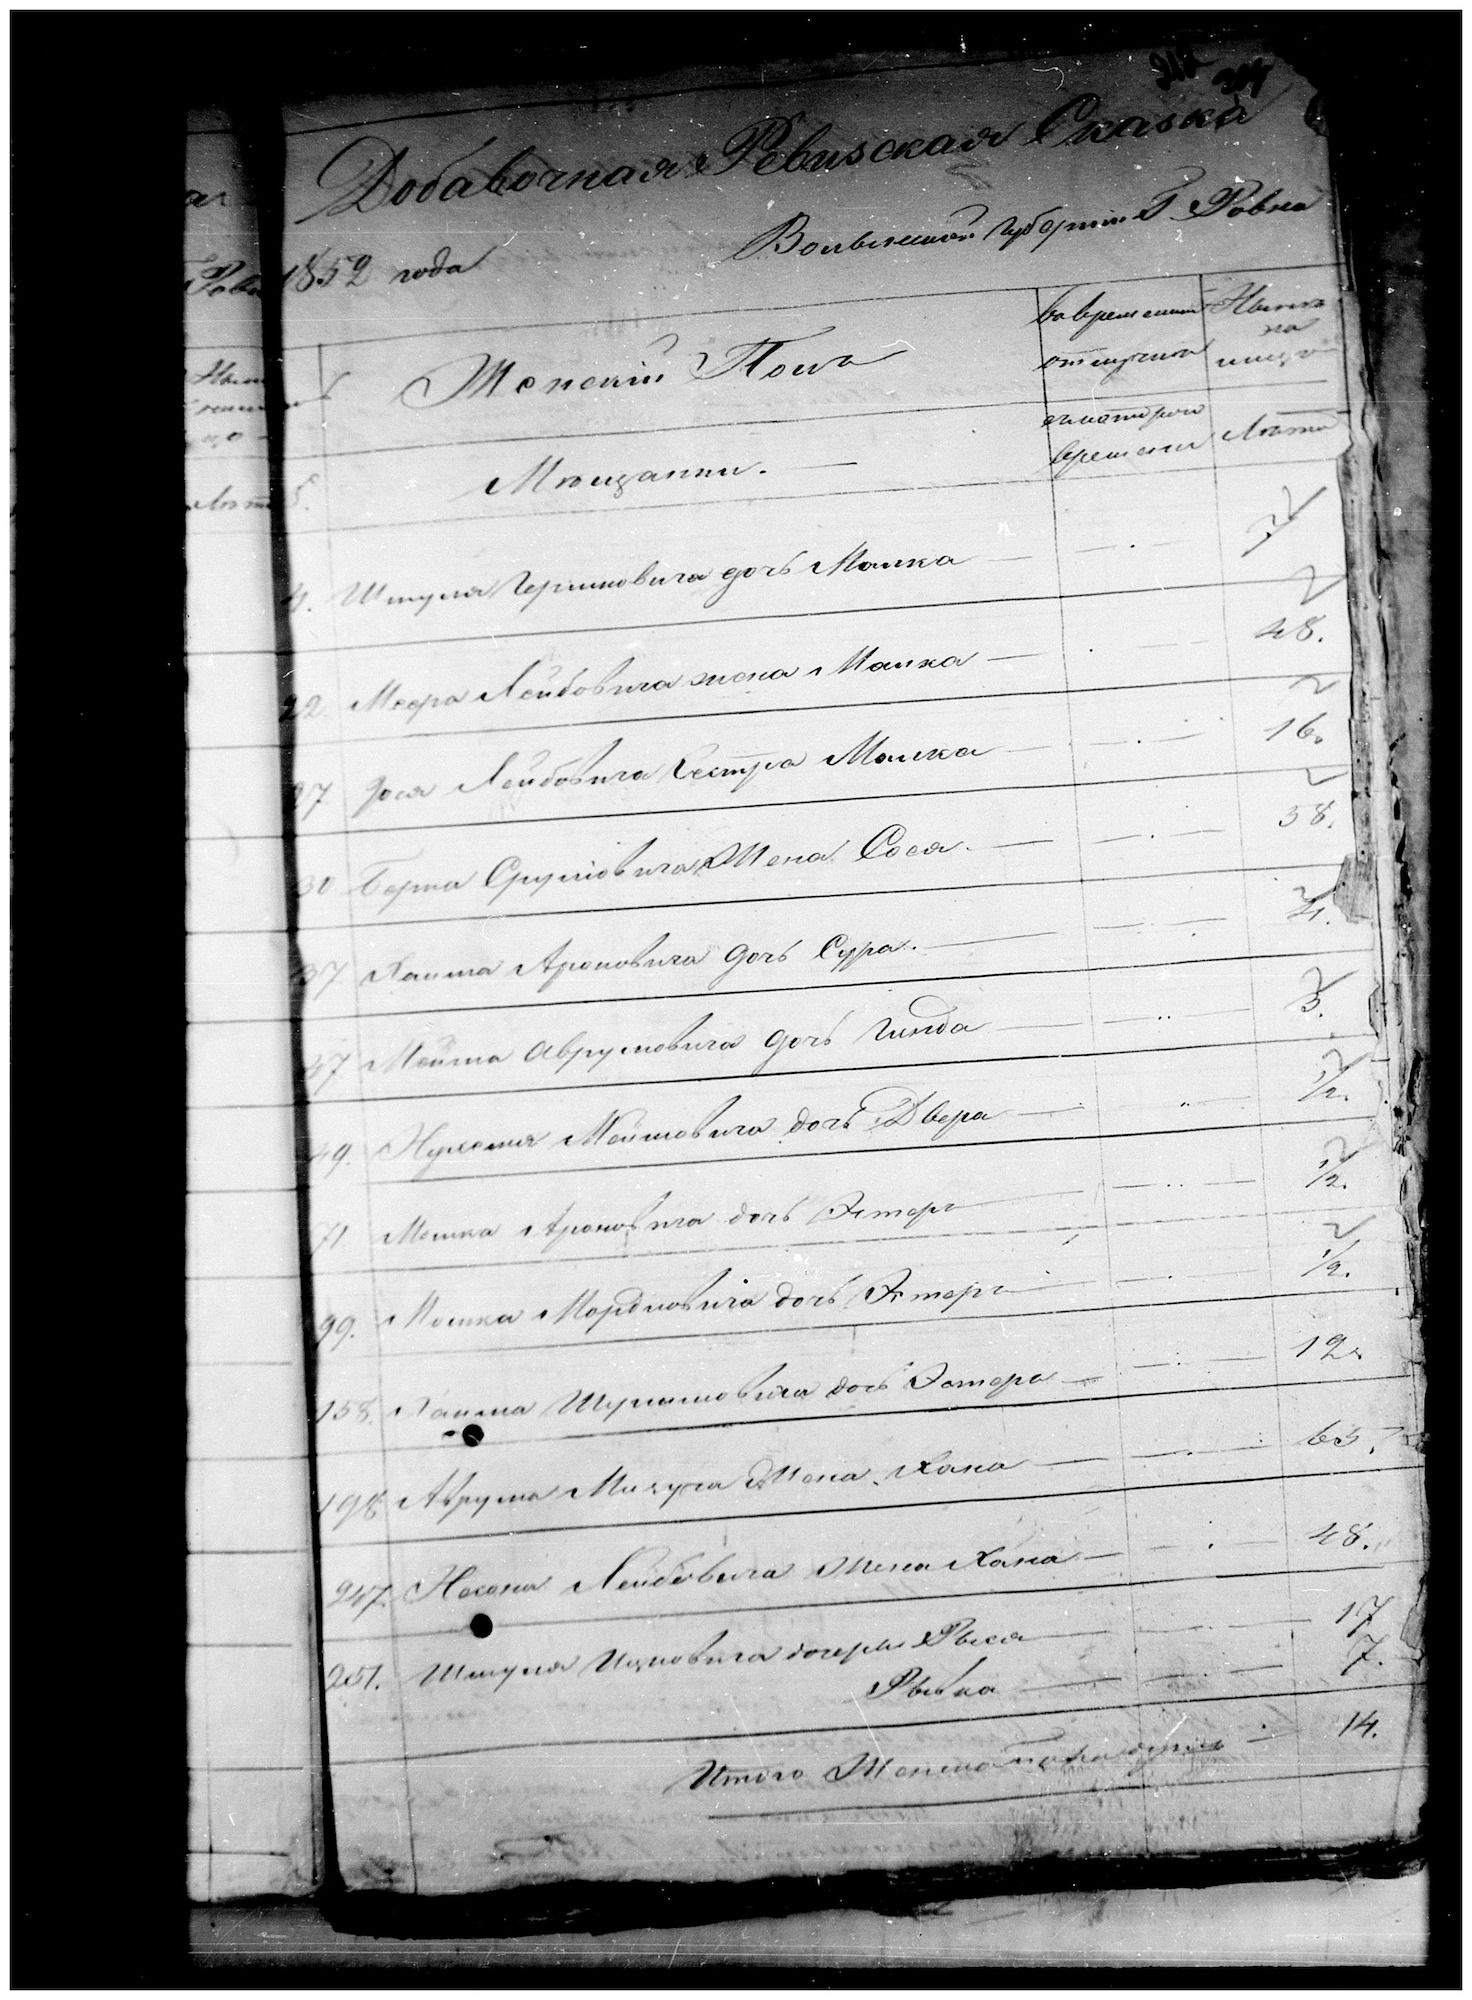 Добавочная Ревизская Сказка
1852 года Волынской Губернии Г. Ровна
Женский Полъ
во временной отлучке
съ котораго времени
Ныне на лицо
Лѣта
Мѣщанки.
4. Шмуля Гершковича дочь Малка
22. Меера Лейбовича жена Малка 48.
27 Лейбовича Сестра Малка 16.
30 Берка Сруловича Жена Сося 38.
37 Хаима Ароновича дочь Сура. 21.
47 Аврумовича дочь Гинда 3.
49. дочь Двера 1/2.
71 Мошка Ароновича дочь Эстера 1/2.
99. Мошка Мордковича дочь Эстера 1/2.
158. Хаима дочь Эстера 12.
198 Аврума Жена Хана 65.
247. Лейбовича жена Хана 48.
251. Шмуля Ицковича дочери Рыся 17
Рывка 7.
Итого Женска пола душъ 14.